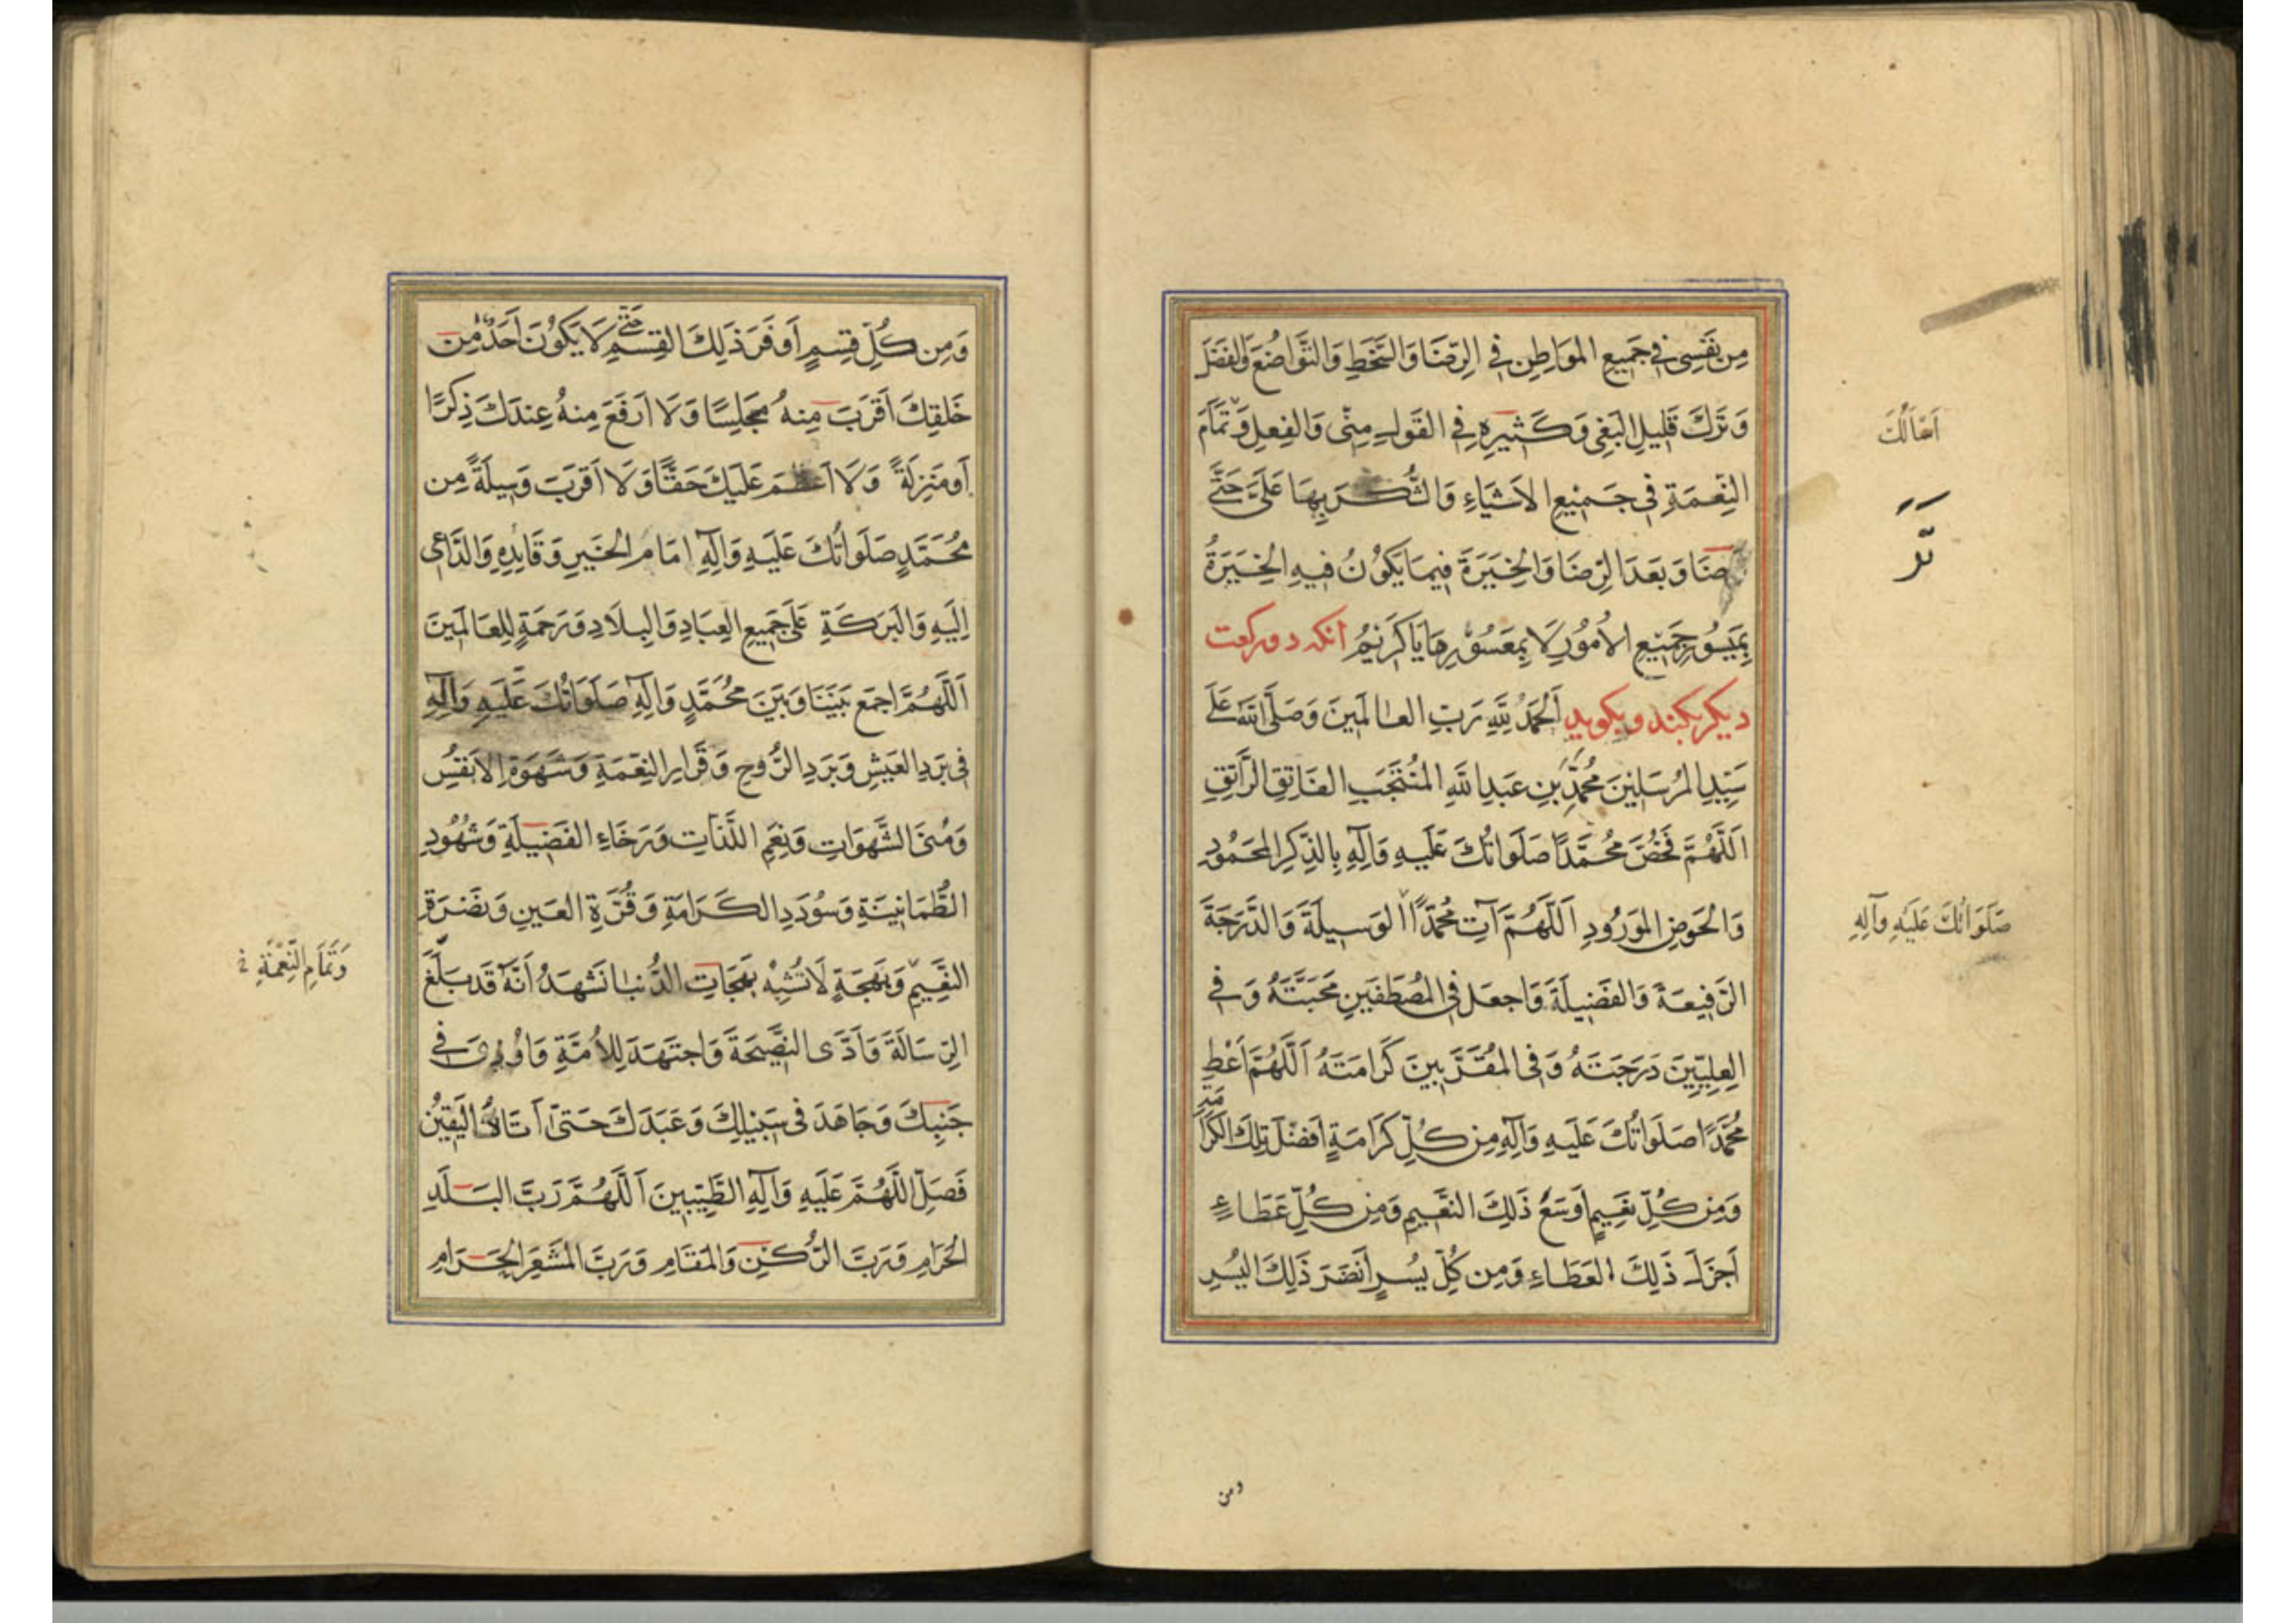 مِن نَفْسِی فِی جَمِیعِ المَوَاطِنِ فِی الرِّضَا وَالسَّخَطِ وَالتَّوَاضُعَ وَالفَضْلَ
وَتَرْكَ قَلِیلِ البَغْیِ وَكَثِیرِهِ فِی القَولِ مِنِّی وَالفِعلِ وَتَمَامَ
اَسْأَلُكَ
النِّعْمَةِ فِی جَمِیعِ الاَشْیَاءِ وَالشُّكْرَ بِهَا عَلَیَّ حَتَّی
تَرْضَا وَبَعْدَ الرِّضَا وَالخِیَرَةَ فِیمَا یَكُونُ فِیهِ الخِیَرَةُ
بِمَیْسُورِ جَمِیعِ الاُمُورِ لَا بِمَعْسُورِهَا یَا كَرِیمُ آنكه دو ركعت
دیكر بكند و بكوید اَلحَمدُ لِلّهِ رَبِّ العَالَمِینَ وَصَلَّی اللهُ عَلَی
سَیِّدِ المُرسَلِینَ مُحَمَّدِ بنِ عَبدِ اللهِ المُنتَجَبِ الفَاتِقِ الرَّاتِقِ
اَللّهُمَّ فَخُصَّ مُحَمَّدًا صَلَوَاتُكَ عَلَیهِ وَآلِهِ بِالذِّكرِ المَحمُودِ
وَالحَوضِ المَورُودِ اَللّهُمَّ آتِ مُحَمَّدًا الوَسِیلَةَ وَالدَّرَجَةَ
صَلَوَاتُكَ عَلَیهِ وَآلِهِ
الرَّفِیعَةَ وَالفَضِیلَةَ وَاجعَل فِی المُصطَفَینِ مَحَبَّتَهُ وَفِی
العِلِّیِّینَ دَرَجَتَهُ وَفِی المُقَرَّبِینَ كَرَامَتَهُ اَللّهُمَّ اَعْطِ
مُحَمَّدًا صَلَوَاتُكَ عَلَیهِ وَآلِهِ مِن كُلِّ كَرَامَةٍ اَفضَلَ تِلكَ الكَرَامَةِ
وَمِن كُلِّ نَعِیمٍ اَوسَعَ ذَلِكَ النَّعِیمِ وَمِن كُلِّ عَطَاءٍ
اَجزَلَ ذَلِكَ العَطَاءِ وَمِن كُلِّ یُسرٍ اَنضَرَ ذَلِكَ الیُسرِ
ومن
وَمِن كُلِّ قِسمٍ اَوفَرَ ذَلِكَ القِسمِ حَتَّی لَا یَكُونَ اَحَدٌ مِن
خَلقِكَ اَقرَبَ مِنهُ مَجلِسًا وَلَا اَرفَعَ مِنهُ عِندَكَ ذِكرًا
اَو مَنزِلَةً وَلَا اَعظَمَ عَلَیكَ حَقًّا وَلَا اَقرَبَ وَسِیلَةً مِن
مُحَمَّدٍ صَلَوَاتُكَ عَلَیهِ وَآلِهِ اِمَامِ الخَیرِ وَقَایِدِهِ وَالدَّاعِی
اِلَیهِ وَالبَرَكَةِ عَلَی جَمِیعِ العِبَادِ وَالبِلَادِ وَرَحمَةٍ لِلعَالَمِینَ
اَللّهُمَّ اجمَع بَینَنَا وَبَینَ مُحَمَّدٍ وَآلِهِ صَلَوَاتُكَ عَلَیهِ وَآلِهِ
فِی بَردِ العَیشِ وَبَردِ الرَّوحِ وَقَرَارِ النِّعمَةِ وَشَهوَةِ الاَنفُسِ
وَمُنَی الشَّهَوَاتِ وَنِعَمِ اللَّذَّاتِ وَرَخَاءِ الفَضِیلَةِ وَشُهُودِ
الطُّمَانِینَةِ وَسُودَدِ الكَرَامَةِ وَقُرَّةِ العَینِ وَنَضرَةِ
النَّعِیمِ وَبَهجَةٍ لَا تُشبِهُ بَهَجَاتِ الدُّنیَا نَشهَدُ اَنَّهُ قَد بَلَّغَ
وَتَمَامِ النِّعْمَةِ
الرِّسَالَةَ وَاَدَّی النَّصِیحَةَ وَاجتَهَدَ لِلاُمَّةِ وَاُوذِیَ فِی
جَنبِكَ وَجَاهَدَ فِی سَبِیلِكَ وَعَبَدَكَ حَتَّی اَتَاهُ الیَقِینُ
فَصَلِّ اللّهُمَّ عَلَیهِ وَآلِهِ الطَّیِّبِینَ اَللّهُمَّ رَبَّ البَلَدِ
الحَرَامِ وَرَبَّ الرُّكنِ وَالمَقَامِ وَرَبَّ المَشعَرِ الحَرَامِ